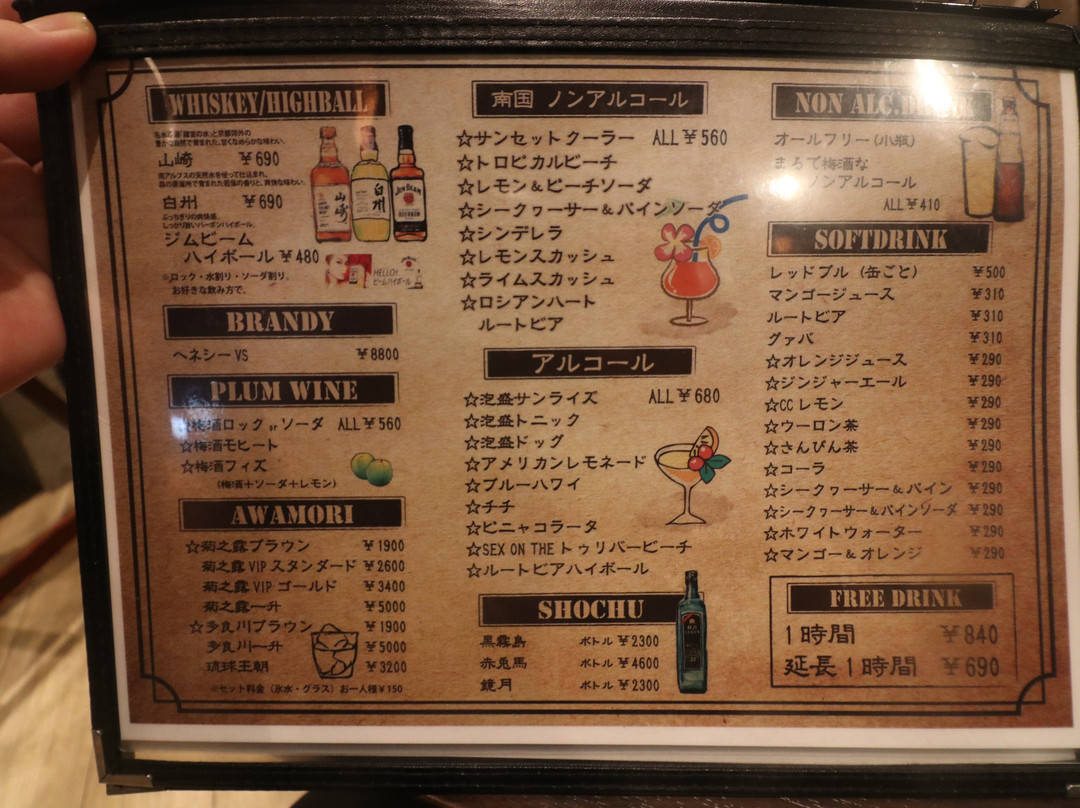 WHISKEY/HIGHBALL
山崎 ¥690
白州 ¥690
しっかり旨いバーボンハイボール。
ジムビーム
ハイボール ¥480
※ロック・水割り・ソーダ割り。
お好きな飲み方で。
山崎
白州
JIM BEAM
HELLO!
ビームハイボール
BRANDY
ヘネシー VS ¥8800
PLUM WINE
梅酒ロック or ソーダ ALL ¥560
☆梅酒モヒート
☆梅酒フィズ
(梅酒+ソーダ+レモン)
AWAMORI
☆菊之露ブラウン ¥1900
菊之露 VIP スタンダード ¥2600
菊之露 VIP ゴールド ¥3400
菊之露一升 ¥5000
☆多良川ブラウン ¥1900
多良川一升 ¥5000
琉球王朝 ¥3200
※セット料金（氷水・グラス）お一人様 ¥150
南国 ノンアルコール
☆サンセットクーラー ALL ¥560
☆トロピカルピーチ
☆レモン＆ピーチソーダ
☆シークヮーサー＆パインソーダ
☆シンデレラ
☆レモンスカッシュ
☆ライムスカッシュ
☆ロシアンハート
ルートビア
アルコール
☆泡盛サンライズ ALL ¥680
☆泡盛トニック
☆泡盛ドッグ
☆アメリカンレモネード
☆ブルーハワイ
☆チチ
☆ピニャコラータ
☆SEX ON THE トゥリバービーチ
☆ルートビアハイボール
SHOCHU
黒霧島 ボトル ¥2300
赤兎馬 ボトル ¥4600
鏡月 ボトル ¥2300
NON ALC.
オールフリー（小瓶）
まるで梅酒な
ノンアルコール
ALL ¥410
SOFTDRINK
レッドブル（缶ごと） ¥500
マンゴージュース ¥310
ルートビア ¥310
グァバ ¥310
☆オレンジジュース ¥290
☆ジンジャーエール ¥290
☆CC レモン ¥290
☆ウーロン茶 ¥290
☆さんぴん茶 ¥290
☆コーラ ¥290
☆シークヮーサー＆パイン ¥290
☆シークヮーサー＆パインソーダ ¥290
☆ホワイトウォーター ¥290
☆マンゴー＆オレンジ ¥290
FREE DRINK
1時間 ¥840
延長1時間 ¥690